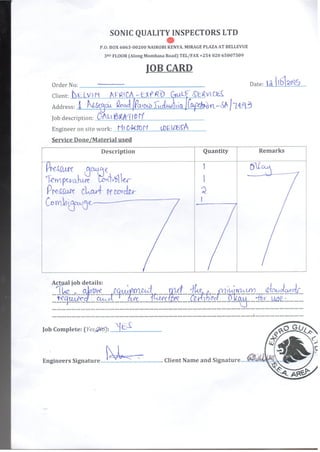 SONIC QUALITY INSPECTORS LTD
P.O. BOX 6063-00200 NAIROBI KENYA, MIRAGE PLAZA AT BELLEVUE
3RD FLOOR (Along Mombasa Road) TEL/FAX +254 020 65007509
JOB CARD
Order No: Date:
Client: DELVIN AFRICA - EXPRO GULF SERVICES
Address: Road
Job description: CALIBRATION
Engineer on site work:
Service Done/Material used
Description Quantity Remarks
Pressure gauge 1 Okay
Temperature Controller 1
Pressure chart recorder 2
Combigauge 1
Actual job details:
The above equipment met the minimum standards
required and are therefore certified Okay for use.
Job Complete: (Yes/No): YES
Engineers Signature Client Name and Signature
EXPRO GULF LTD
S.E.A. AREA